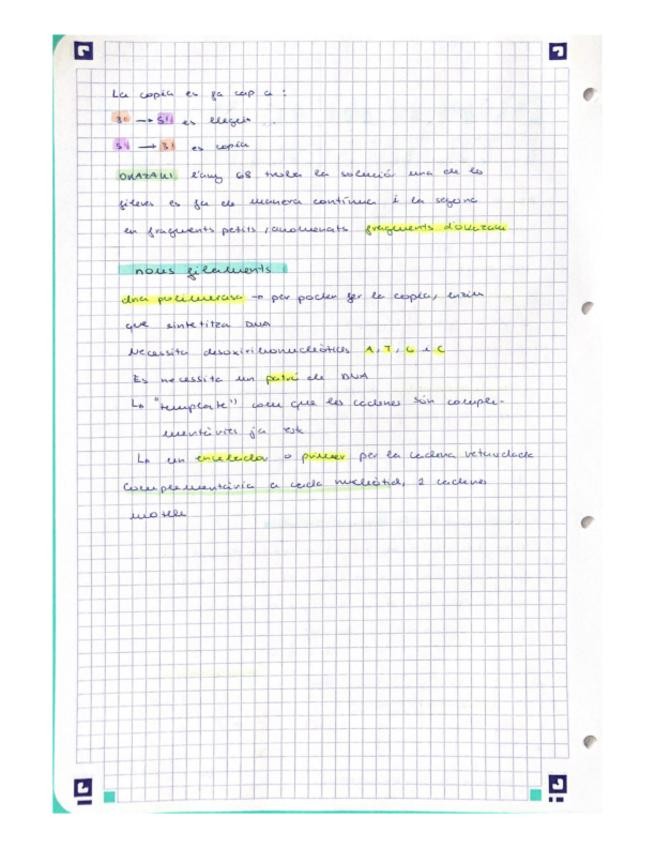 La copia es fa cap a :
3' → 5' es llegeix
5' → 3' es copia
OKAZAKI l'any 68 troba la solució una de les
fileres es fa de manera contínua i la segona
en fragments petits, anomenats fragments d'okazaki
nous filaments
dna polimerasa → per poder fer la copia, enzim
que sintetitza DNA
Necessita desoxiribonucleòtids A, T, G i C
Es necessita un patró de DNA
↳ "template" com que les cadenes són comple-
mentàries ja
↳ un encebador o primer per la cadena retardada
complementària a cada nucleòtid, 2 cadenes
motlle